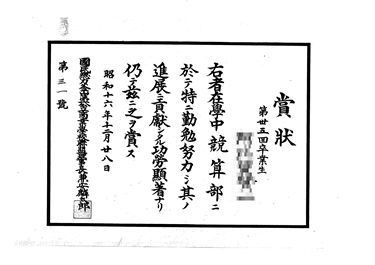 賞狀
第廿五回卒業生
右者在學中競算部ニ
於テ特ニ勤勉努力シ其ノ
進展ニ貢献シタル功勞顯著ナリ
仍テ茲ニ之ヲ賞ス
昭和十六年十二月廿八日
第三一號